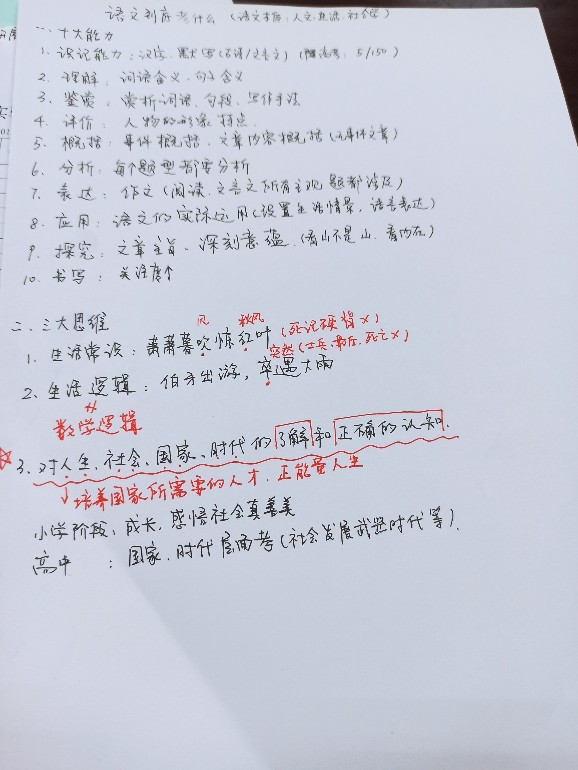 语文到底考什么（语文素养：人文、生活、社会等）
一、十大能力
1. 识记能力：汉字、默写（古诗/文言文）（高考：5/150）
2. 理解：词语含义、句子含义
3. 鉴赏：赏析词语、句段、写作手法
4. 评价：人物的形象、特点
5. 概括：事件概括、文章内容概括（无事件文章）
6. 分析：每个题型都要分析
7. 表达：作文（阅读、文言文所有主观题都涉及）
8. 应用：语文的实际运用（设置生活情景，语言表达）
9. 探究：文章主旨、深刻意蕴（看山不是山、看内在）
10. 书写：关注度↑
二、三大思维
风 秋风
1. 生活常识：萧萧暮吹惊红叶（死记硬背×）
突然（士兵、最后、死亡×）
2. 生活逻辑：伯牙出游，卒遇大雨
数学逻辑
☆3. 对人生、社会、国家、时代的了解和正确的认知.
↓培养国家所需要的人才、正能量人生
小学阶段：成长，感悟社会真善美
高中：国家、时代层面考（社会发展武器时代等）.